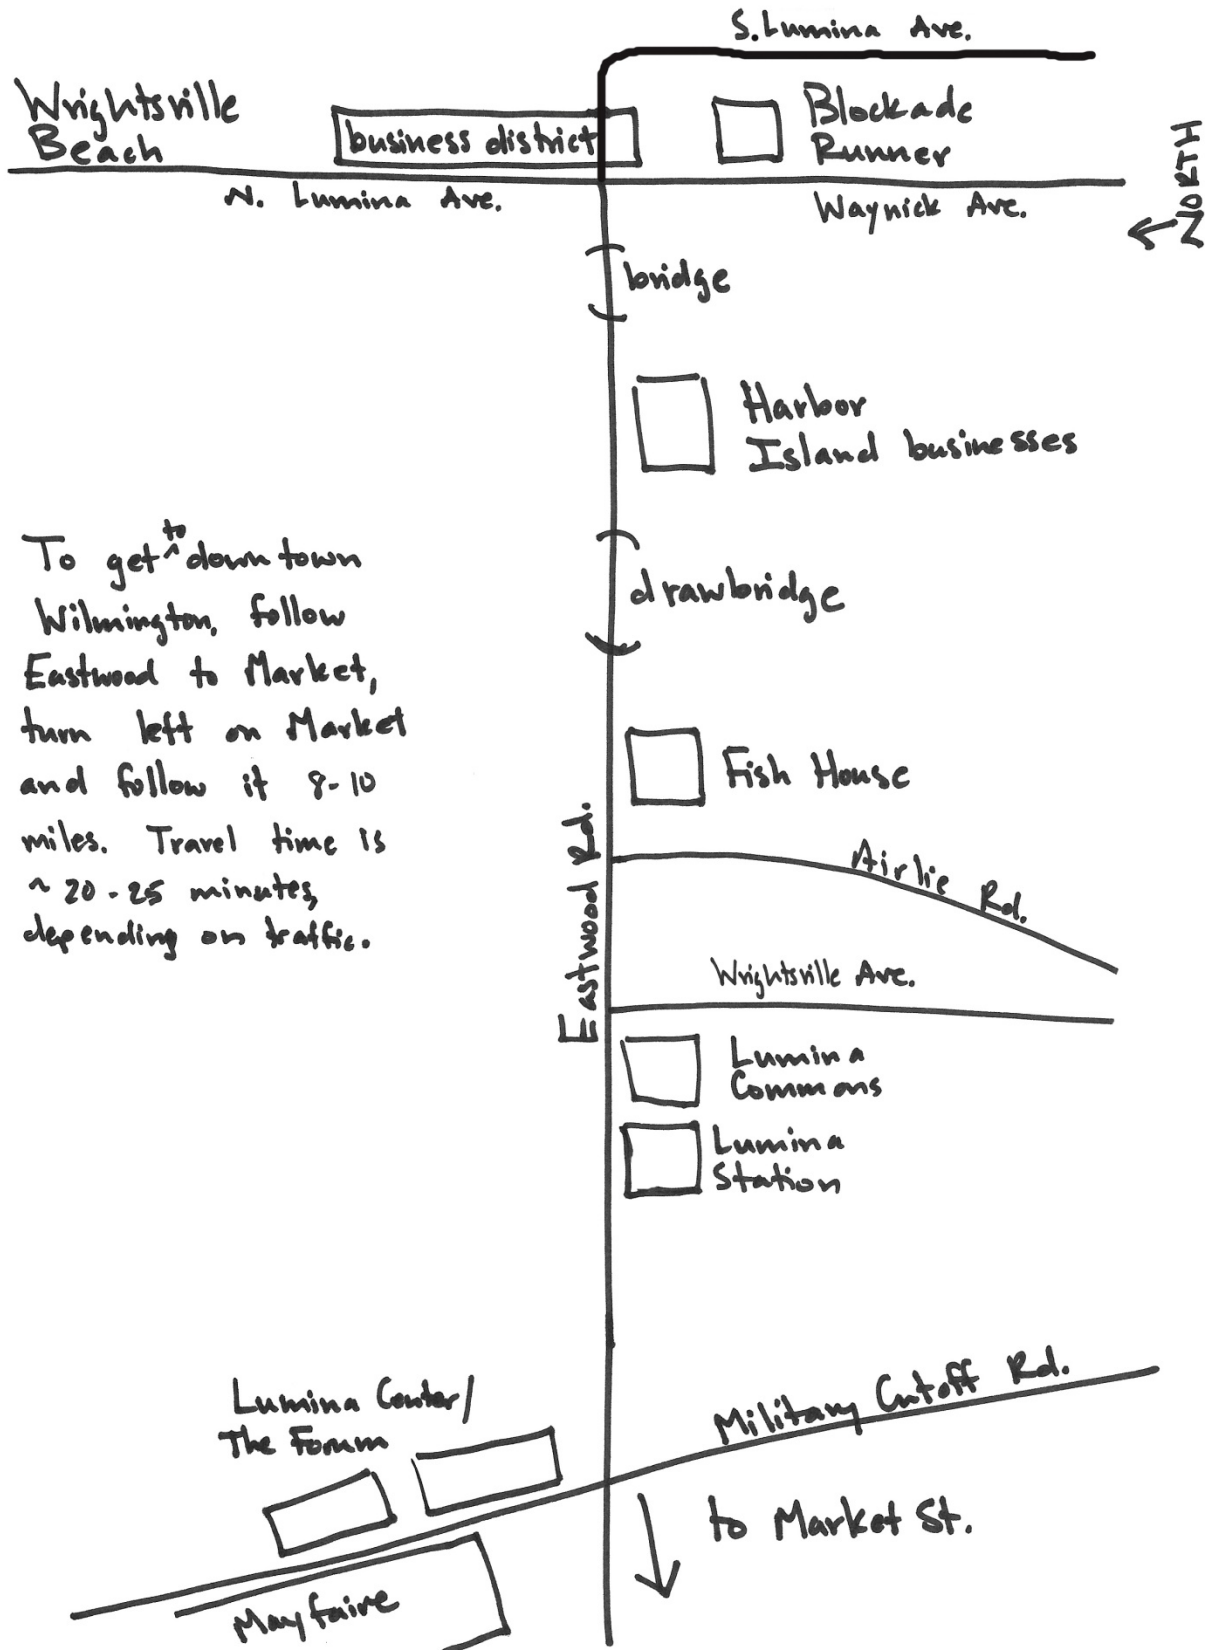 S. Lumina Ave.
Wrightsville
Beach
business district
Blockade
Runner
NORTH
N. Lumina Ave.
Waynick Ave.
bridge
Harbor
Island businesses
To get to downtown
Wilmington, follow
Eastwood to Market,
turn left on Market
and follow it 8-10
miles. Travel time is
~ 20-25 minutes,
depending on traffic.
drawbridge
Fish House
Eastwood Rd.
Airlie Rd.
Wrightsville Ave.
Lumina
Commons
Lumina
Station
Lumina Center/
The Forum
Military Cutoff Rd.
to Market St.
Mayfaire